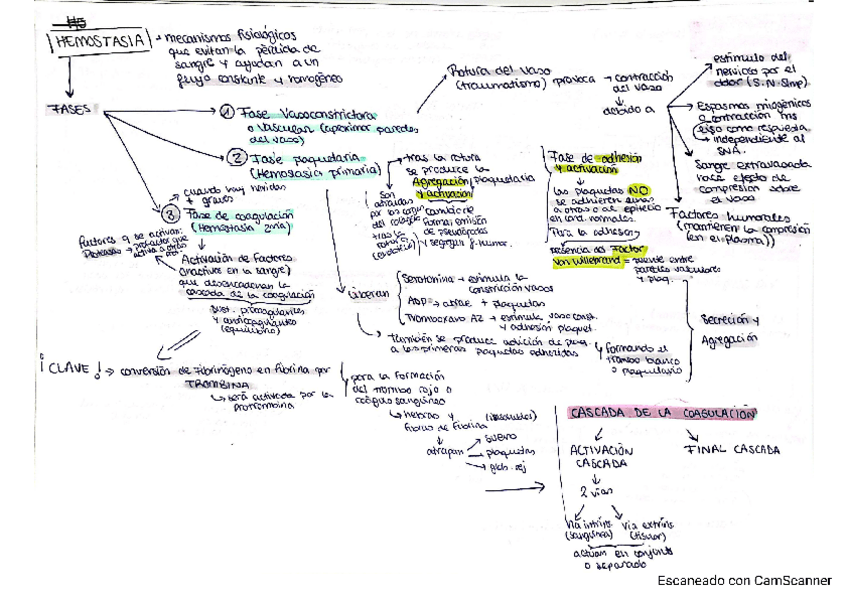 HEMOSTASIA → mecanismos fisiológicos
que evitan la pérdida de
sangre y ayudan a un
flujo constante y homogéneo
FASES
① Fase Vasoconstrictora
o Vascular (aproximar paredes
del vaso)
Rotura del vaso
(traumatismo) provoca → contracción
del vaso
debido a
estímulo del
nervioso por el
dolor (S.N. Simp).
Espasmos miogénicos
o contracción ms
liso como respuesta
→ independiente al
SNA.
Sangre extravasada
hace efecto de
compresión sobre
el vaso
Factores humorales
(mantienen la compresión
(en el plasma))
② Fase plaquetaria
(Hemostasia primaria)
tras la rotura
se produce la
Agregación plaquetaria
y activación
son
atraídas
por las
del colágeno
tras la
rotura
cambio de
forma: emisión
de pseudópodos
y segregan f. humor.
Fase de adhesión
y activación
Las plaquetas NO
se adhieren unas
a otras o al epitelio
en cond. normales.
Para la adhesión
presencia del Factor
Von Willebrand = puente entre
paredes vasculares
y plaq.
liberan
Serotonina → estimula la
constricción vasos
ADP → atrae + plaquetas
Tromboxano A2 → estimula vasoconst.
y adhesión plaquet.
También se produce adición de plaq.
a las primeras plaquetas adheridas
y formando el
trombo blanco
o plaquetario
Secreción y
Agregación
cuando hay heridas
+ graves
③ Fase de coagulación
(Hemostasia 2ria)
factores q se activan:
Proteasas → que
activa a otro
Activación de Factores
(inactivos en la sangre)
que desencadenan la
cascada de la coagulación
sust. procoagulantes
y anticoagulantes
(equilibrio)
¡CLAVE! → conversión de Fibrinógeno en Fibrina por
TROMBINA
→ será activada por la
protrombina
para la formación
del trombo rojo o
coágulo sanguíneo
→ hebras y (insolubles)
fibras de fibrina
atrapan
suero
plaquetas
glob. roj
CASCADA DE LA COAGULACIÓN
ACTIVACIÓN
CASCADA
FINAL CASCADA
2 vías
vía intríns
(sanguínea)
vía extríns
(tisular)
actúan en conjunto
o separado
Escaneado con CamScanner